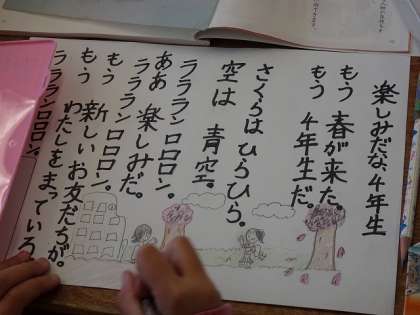 楽しみだな４年生
もう 春が来た。
もう ４年生だ。
さくらは ひらひら。
空は 青空。
ラララン ロロロン。
ああ 楽しみだ。
ラララン ロロロン。
もう 新しいお友だちが。
もう わたしをまっている
ラララン ロロロン。